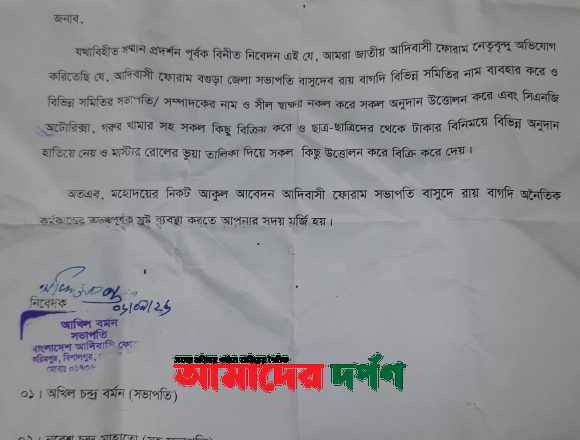 জনাব,
যথাবিহীত সম্মান প্রদর্শন পূর্বক বিনীত নিবেদন এই যে, আমরা জাতীয় আদিবাসী ফোরাম নেতৃবৃন্দ অভিযোগ
করিতেছি যে, আদিবাসী ফোরাম বগুড়া জেলা সভাপতি বাসুদেব রায় বাগদি বিভিন্ন সমিতির নাম ব্যবহার করে ও
বিভিন্ন সমিতির সভাপতি/ সম্পাদকের নাম ও সীল স্বাক্ষর নকল করে সকল অনুদান উত্তোলন করে এবং সিএনজি
অটোরিক্সা, গরুর খামার সহ সকল কিছু বিক্রিয় করে ও ছাত্র-ছাত্রিদের থেকে টাকার বিনিময়ে বিভিন্ন অনুদান
হাতিয়ে নেয় ও মাস্টার রোলের ভুয়া তালিকা দিয়ে সকল কিছু উত্তোলন করে বিক্রি করে দেয়।
অতএব, মহোদয়ের নিকট আকুল আবেদন আদিবাসী ফোরাম সভাপতি বাসুদে রায় বাগদি অনৈতিক
কর্মকান্ডের তদন্তপূর্বক সুষ্ট ব্যবস্থা করতে আপনার সদয় মর্জি হয়।
নিবেদক
আখিল বর্মন
সভাপতি
বাংলাদেশ আদিবাসী ফো
আমাদের দর্পণ
০১। অখিল চন্দ্র বর্মন (সভাপতি)